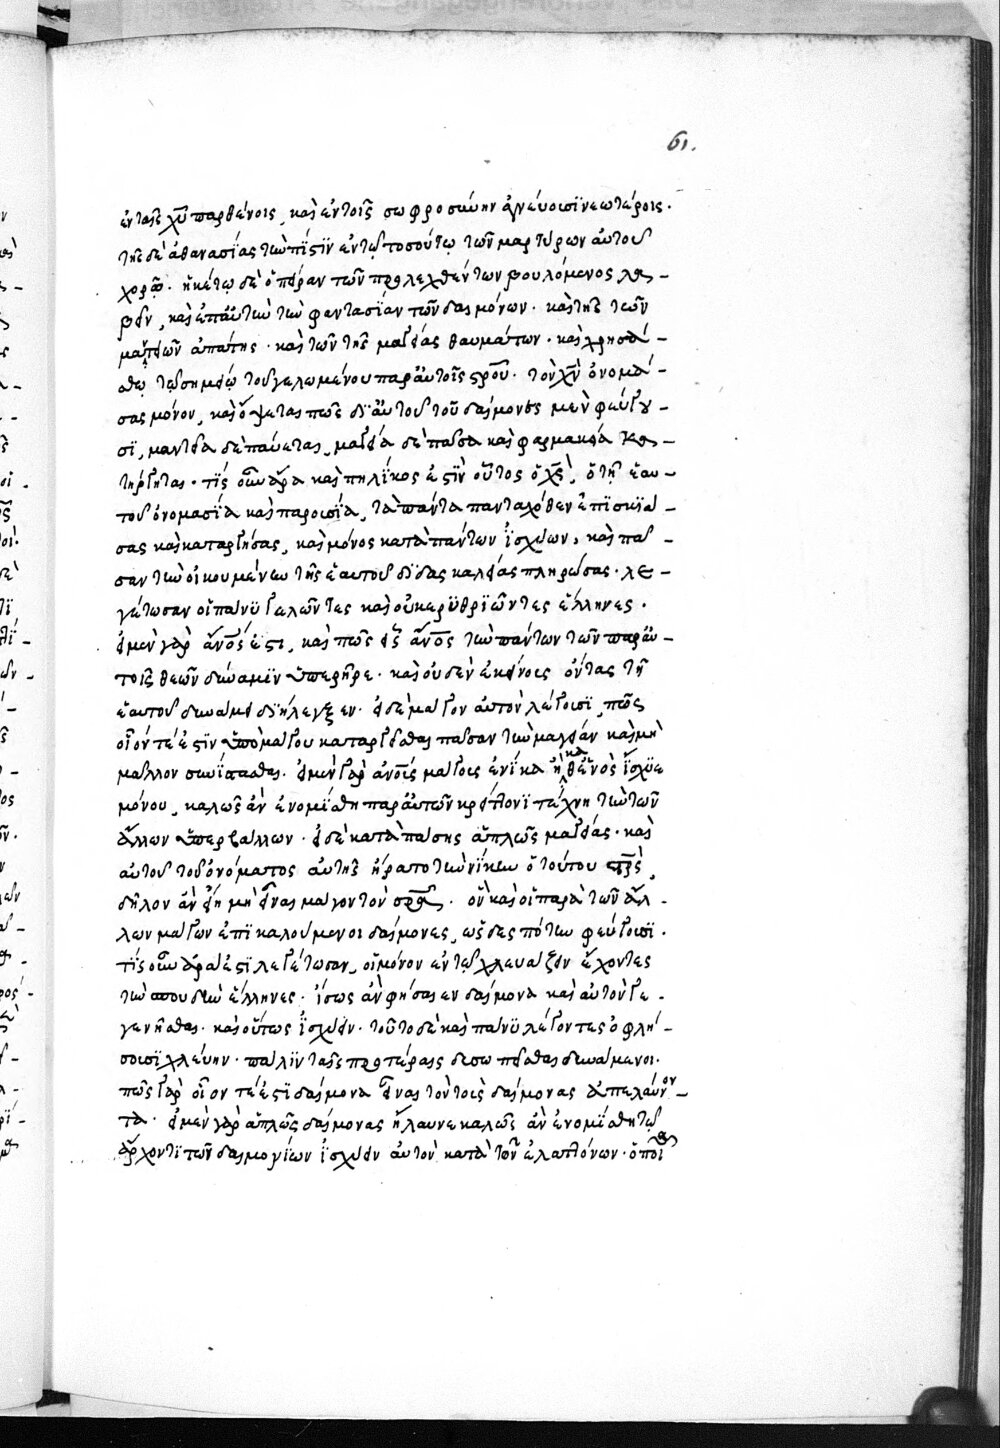 61.
ἐν ταῖς χῦ παρθένοις, καὶ ἐν τοῖς σωφροσύνην ἁγνεύουσι νεωτέροις.
τῆς δὲ ἀθανασίας τὼ πίστιν ἐν τῷ τοσούτῳ τῶν μαρτύρων αὐτοῦ
χορῷ. ἡκέτω δὲ ὁ πεῖραν τῶν προλεχθέντων βουλόμενος λα-
βεῖν, καὶ ἐπ' αὐτὼ τὼ φαντασίαν τῶν δαιμόνων. καὶ τῆς τῶν
μαντειῶν ἀπάτης. καὶ τῶν τῆς μαγείας θαυμάτων. καὶ χρησά-
σθω τῷ σημείῳ τοῦ γελωμένου παρ' αὐτοῖς σροῦ. τὸν χν ὀνομά-
σας μόνον, καὶ ὄψεται πῶς δι' αὐτοῦ τοῦ δαίμονες μὲν φεύγου-
σι, μαντεία δὲ παύεται, μαγεία δὲ πᾶσα καὶ φαρμακεία κα-
τήργηται. τίς οὖν ἄρα καὶ πηλίκος ἐστὶν οὗτος ὁ χς, ὁ τῇ ἑαυ-
τοῦ ὀνομασία καὶ παρουσία, τὰ πάντα πανταχόθεν ἐπισκιά-
σας καὶ καταργήσας, καὶ μόνος κατὰ πάντων ἰσχύων, καὶ πᾶ-
σαν τὼ οἰκουμένω τῆς ἑαυτοῦ διδασκαλίας πληρώσας. λε-
γέτωσαν οἱ πάνυ γελῶντες καὶ οὐκ ἐρυθριῶντες ἕλληνες.
εἰ μὲν γὰρ ἄνος ἐστι, καὶ πῶς εἷς ἄνος τὼ πάντων τῶν παρ' αὐ-
τοῖς θεῶν δύναμιν ὑπερῆρε. καὶ οὐδὲν ἐκείνους ὄντας τῇ
ἑαυτοῦ δυνάμει διήλεγξεν. εἰ δὲ μάγον αὐτὸν λέγουσι, πῶς
οἷόν τέ ἐστιν ὑπὸ μάγου καταργεῖσθαι πᾶσαν τὼ μαγείαν καὶ μὴ
μᾶλλον συνίστασθαι. εἰ μὲν γὰρ ἀνους μάγους ἐνίκα ἢ καθ' ἑνὸς ἴσχυε
μόνου, καλῶς ἂν ἐνομίσθη παρ' αὐτῶν κρείττονι τέχνη τὼ τῶν
ἄλλων ὑπερβάλλων. εἰ δὲ κατὰ πάσης ἁπλῶς μαγείας. καὶ
αὐτοῦ τοῦ ὀνόματος αὐτῆς ἤρατο τὼ νίκω ὁ τούτου σρς,
δῆλον ἂν εἴη μὴ εἶναι μάγον τὸν σρα. ὃν καὶ οἱ παρὰ τῶν ἄλ-
λων μάγων ἐπικαλούμενοι δαίμονες, ὡς δεσπότω φεύγουσι.
τίς οὖν ἄρα ἐστὶ λεγέτωσαν, οἱ μόνον ἐν τῷ χλευάζειν ἔχοντες
τὼ σπουδὼ ἕλληνες. ἴσως ἂν φήσαιεν δαίμονα καὶ αὐτὸν γε-
γενῆσθαι. καὶ οὕτως ἰσχύειν. τοῦτο δὲ καὶ πάνυ λέγοντες ὀφλή-
σουσι χλεύην. πάλιν ταῖς προτέραις δυσωπεῖσθαι δυνάμενοι.
πῶς γὰρ οἷον τέ ἐστι δαίμονα εἶναι τὸν τοὺς δαίμονας ἀπελαύνον-
τα. εἰ μὲν γὰρ ἁπλῶς δαίμονας ἤλαυνε καλῶς ἂν ἐνομίσθη τῷ
ἄρχοντι τῶν δαιμονίων ἰσχύειν αὐτὸν κατὰ τῶν ἐλαττόνων. ὁποῖα